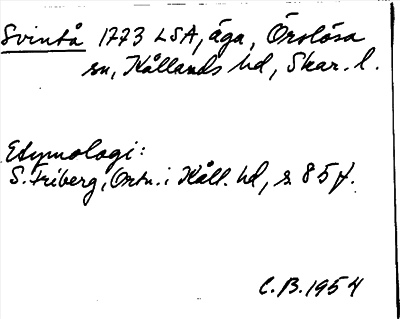 Svintå 1773 LSA, äga, Örslösa
sn, Kållands hd, Skar. l.
Etymologi:
S. Friberg, Ortn. i Kåll. hd, s. 85 f.
C.B. 1954